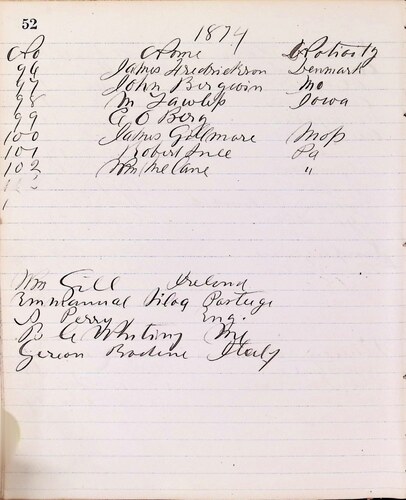 52
1874
No Name Nativity
96 James Fredrickson Denmark
97 John Bergwin Mo
98 M Lawless Iowa
99 C O Berg
100 James Gillmore Mass
101 Robert Ince Pa
102 Wm McCane "
Wm Gill Ireland
Emmanual Silag Portuge
S Perry Eng.
B. C Whiting Me
Gereon Bodine Italy